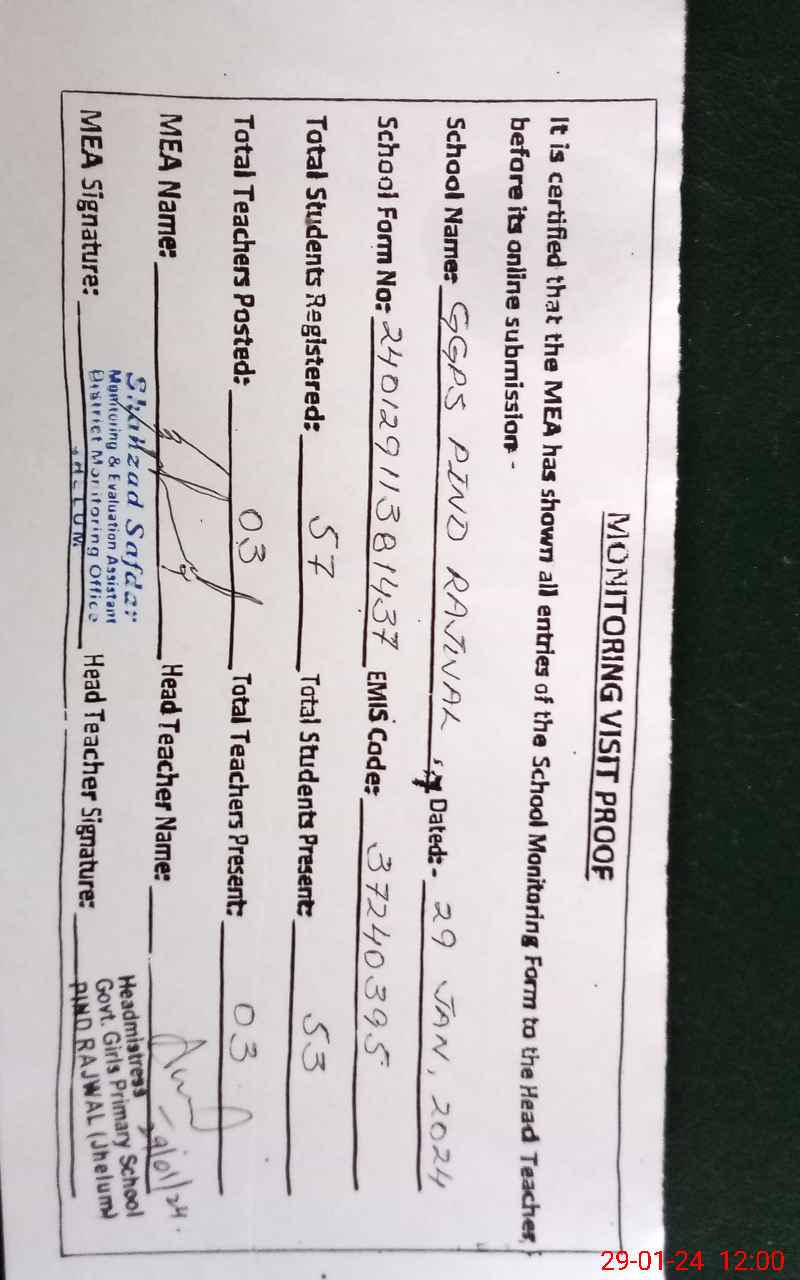 MONITORING VISIT PROOF
It is certified that the MEA has shown all entries of the School Monitoring Form to the Head Teacher,
before its online submission -
School Name: GGPS PIND RAJWAL Dated:- 29 JAN, 2024
School Form No: 24012911381437 EMIS Code: 37240395
Total Students Registered: 57 Total Students Present: 53
Total Teachers Posted: 03 Total Teachers Present: 03
MEA Name: Head Teacher Name:
29/01/24.
Shahzad Safdar
Monitoring & Evaluation Assistant
District Monitoring Office
JHELUM
Headmistress
Govt. Girls Primary School
PIND RAJWAL (Jhelum)
MEA Signature: Head Teacher Signature:
29-01-24 12:00